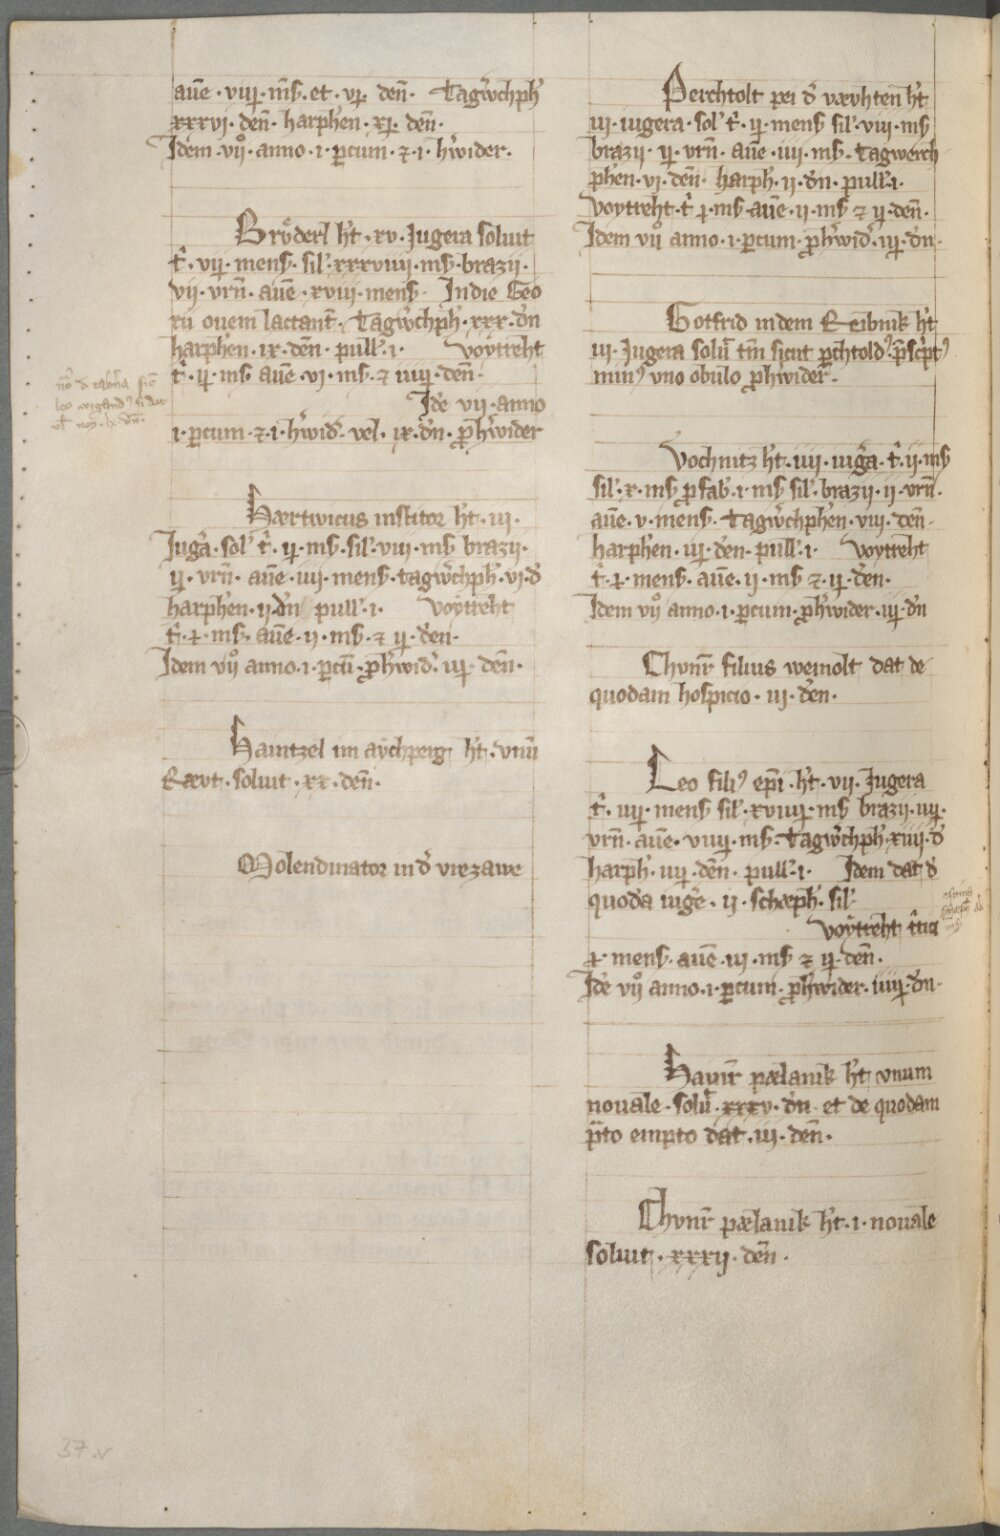 aūe · viiij · mēs · et · vij · den̄ · Tagw̓chph̓
xxxvi · den̄ · harphen · xj · den̄ ·
Idem vijͦ · anno · i · ꝑcum · ⁊ · i · h̓wider ·
Brůderl h̓t · xv · Jugera soluit
t̓ · vij · mens · sil̓ · xxxviiij · ms · brazij ·
vij · vrn̄ · aūe · xviii · mens · Jndie Geo
rii ouem lactant̓ · Tagw̓chph̓ · xxx · dn̄
harphen · ix · den̄ · pull̓ · i · voytreht
t̓ · ij · ms aūe · vi · ms · ⁊ iiij · den̄ ·
Idē vij · anno
i · ꝑcum · ⁊ · i · h̓wid̓ · vel · ix · dn̄ · ꝓ h̓wider
Hærtwicus institor h̓t · iij ·
Jugr̄a · sol̓ t̓ · ij · ms · sil̓ · viii · ms brazij ·
ij · vrn̄ · aūe · iiij · mens · tagw̓chph̓ · vi · d̓
harphen · ij · dn̄ pull̓ · i · voytreht
t̓ · j · ms · aūe · ij · ms · ⁊ ij · den̄ ·
Idem vijͦ anno · i · ꝑcū · ꝓ h̓wid̓ · iij · den̄ ·
Haintzel im aychperg h̓t · vnū
Rævt · soluit · xx · den̄ ·
Molendinator in d̓ vrezawe
nō d̓ tab̓na sic̄
leo wigand̓
Perchtolt pei d̓ vævhten h̓t
iij · iugera · sol̓ t̓ · ij · mens sil̓ · viii · ms
brazij · ij · vrn̄ · aūe · iiij · ms · Tagwerch
phen · vi · den̄ · harph̓ · ij · dn̄ · pull̓ · i ·
voytreht · t̓ j · ms · aūe · ij · ms ⁊ ij · den̄ ·
Idem vijͦ anno · i · ꝑcum · ꝓ h̓wid̓ · iij · dn̄ ·
Gotfrid in dem Reibnik h̓t
iij · Jugera solū tm̄ sicut ꝑchtold̓ · p̄sc̓pt̓
min̓ vno obulo ꝓ h̓wider̄ ·
Vochnitz h̓t · iiij · iugr̄a · t̓ · ij · ms
sil̓ · x · ms ꝓ fab̓ · i · ms sil̓ · brazij · ij · vrn̄ ·
aūe · v · mens · Tagw̓chphen · viij · den̄ ·
harphen · iij · den̄ · pull̓ · i · voytreht
t̓ · j · mens · aūe · ij · ms ⁊ · ij · den̄ ·
Idem vijͦ anno · i · ꝑcum · ꝓ h̓wider · iij · dn̄
Chvnr̄ filius weinolt dat de
quodam hospicio · iij · den̄ ·
Leo fili̓ epī · h̓t · vij · Jugera
t̓ · iiij · mens sil̓ · xviiij · ms brazij · iiij ·
vrn̄ · aūe · viiij · ms · Tagw̓chph̓ · xiiij · d̓
harph̓ · iiij · den̄ · pull̓ · i · Idem dat d̓
quodā iug̓e · ij · schæph̓ · sil̓
voytreht t̓tici
j · mens · aūe · iij · ms ⁊ ij · den̄ ·
Idē vijͦ anno · i · ꝑcum · ꝓ h̓wider · iiij · dn̄ ·
Hainr̄ pælanik h̓t vnum
nouale · solū · xxxv · dn̄ · et de quodam
p̄to empto dat · iij · den̄ ·
Chvnr̄ pælanik h̓t · i · nouale
soluit · xxxij · den̄ ·
37.v